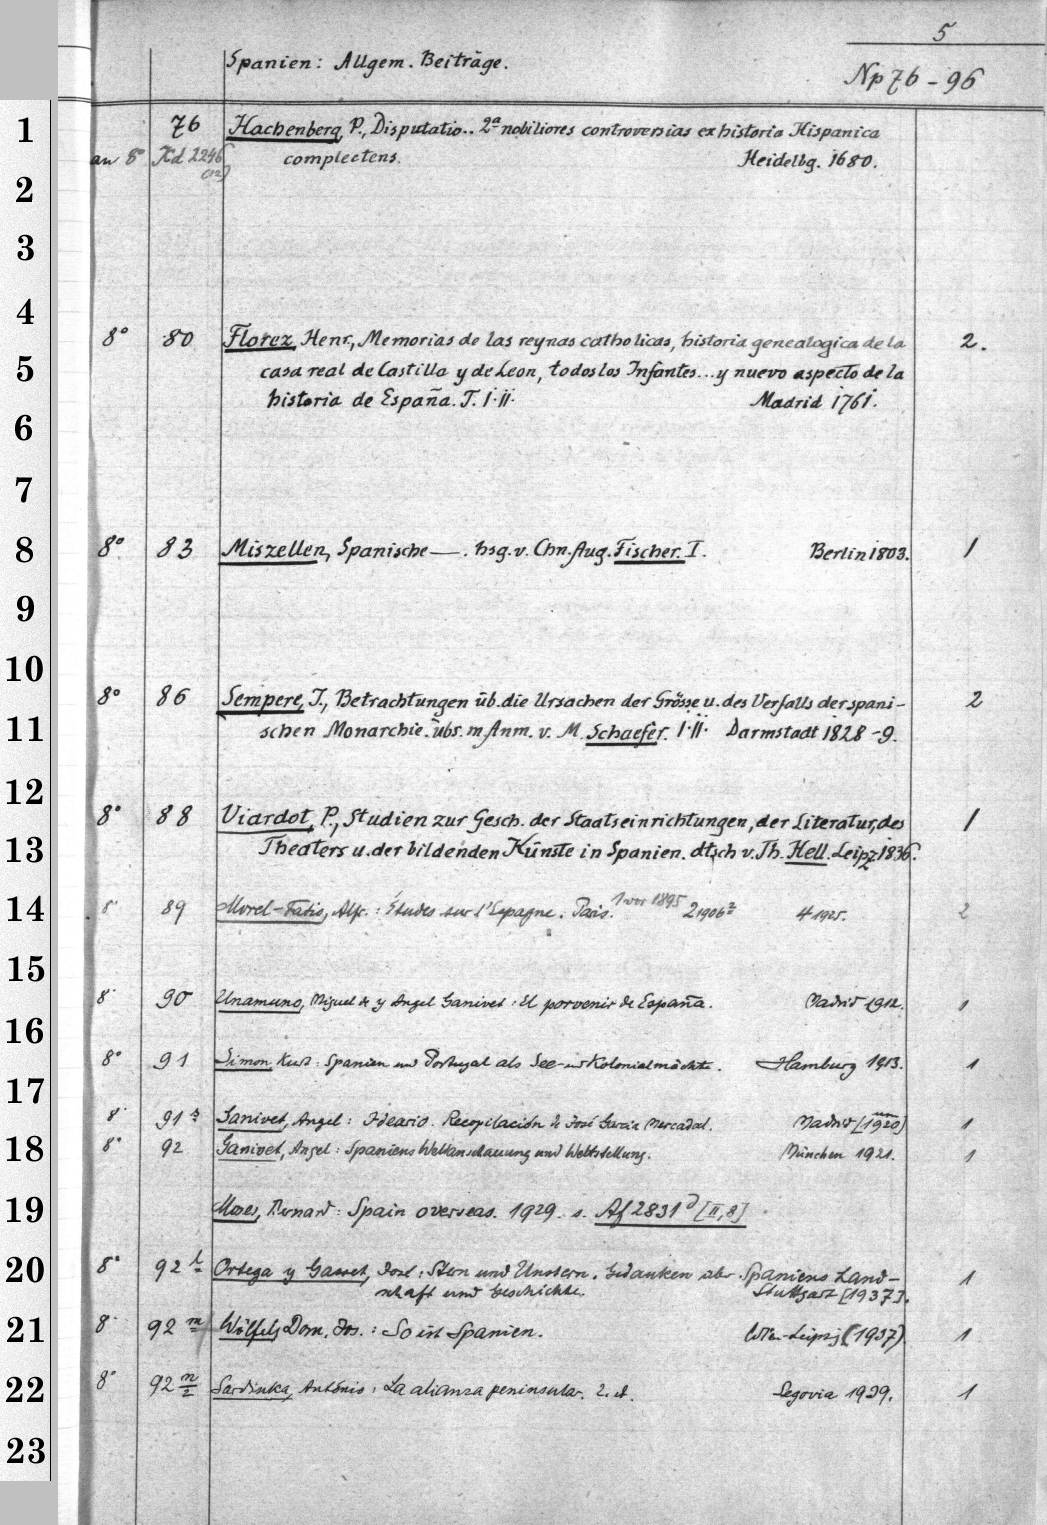 5
Spanien: Allgem. Beiträge.
Np 76 - 96
1
76 Hachenberg, P., Disputatio.. 2ª nobiliores controversias ex historia Hispanica
an 8° Kd 2246 complectens. Heidelbg. 1680.
(12)
2
3
4
8° 80 Florez, Henr., Memorias de las reynas catholicas, historia genealogica de la 2.
5
casa real de Castilla y de Leon, todos los Infantes... y nuevo aspecto de la
historia de España. T. I·II· Madrid 1761.
6
7
8
8° 83 Miszellen, Spanische —. hsg. v. Chn. Aug. Fischer. I. Berlin 1803. 1
9
10
8° 86 Sempere, J., Betrachtungen üb. die Ursachen der Grösse u. des Verfalls der spani- 2
11
schen Monarchie. übs. m. Anm. v. M. Schaefer. I·II· Darmstadt 1828 -9.
12
8° 88 Viardot, P., Studien zur Gesch. der Staatseinrichtungen, der Literatur, des 1
13
Theaters u. der bildenden Künste in Spanien. dtsch v. Th. Hell. Leipz. 1836.
14
8° 89 Morel-Fatio, Alfr.: Études sur l'Espagne. Paris. 1 vor 1895 2 1906² 4 1925. 2
15
8° 90 Unamuno, Miguel de y Angel Ganivet: El porvenir de España. Madrid 1912. 1
16
8° 91 Simon, Kurt: Spanien und Portugal als See- und Kolonialmächte. Hamburg 1913. 1
17
8° 91 a Ganivet, Angel: Ideario. Recopilación de José García Mercadal. Madrid [um 1920] 1
18
8° 92 Ganivet, Angel: Spaniens Weltanschauung und Weltstellung. München 1921. 1
19
Moses, Bernard: Spain overseas. 1929. s. Af 2831 d [II,8]
20
8° 92 l Ortega y Gasset, José: Stern und Unstern. Gedanken über Spaniens Land- 1
schaft und Geschichte. Stuttgart [1937].
21
8° 92 m Wölfel, Dom. Jos.: So ist Spanien. Wien-Leipzig (1937) 1
22
8° 92 n/2 Sardinha, António: La alianza peninsular. 2. ed. Segovia 1939. 1
23